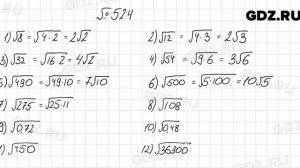 GDZ.RU
№524
1) √8 = √4·2 = 2√2
2) √12 = √4·3 = 2√3
3) √32 = √16·2 = 4√2
4) √54 = √9·6 = 3√6
5) √490 = √49·10 = 7√10
6) √500 = √5·100 = 10√5
7) √275 = √25·11
8) √108
9) √0,72
10) √0,48
√450
12) √36300
GDZ.RU